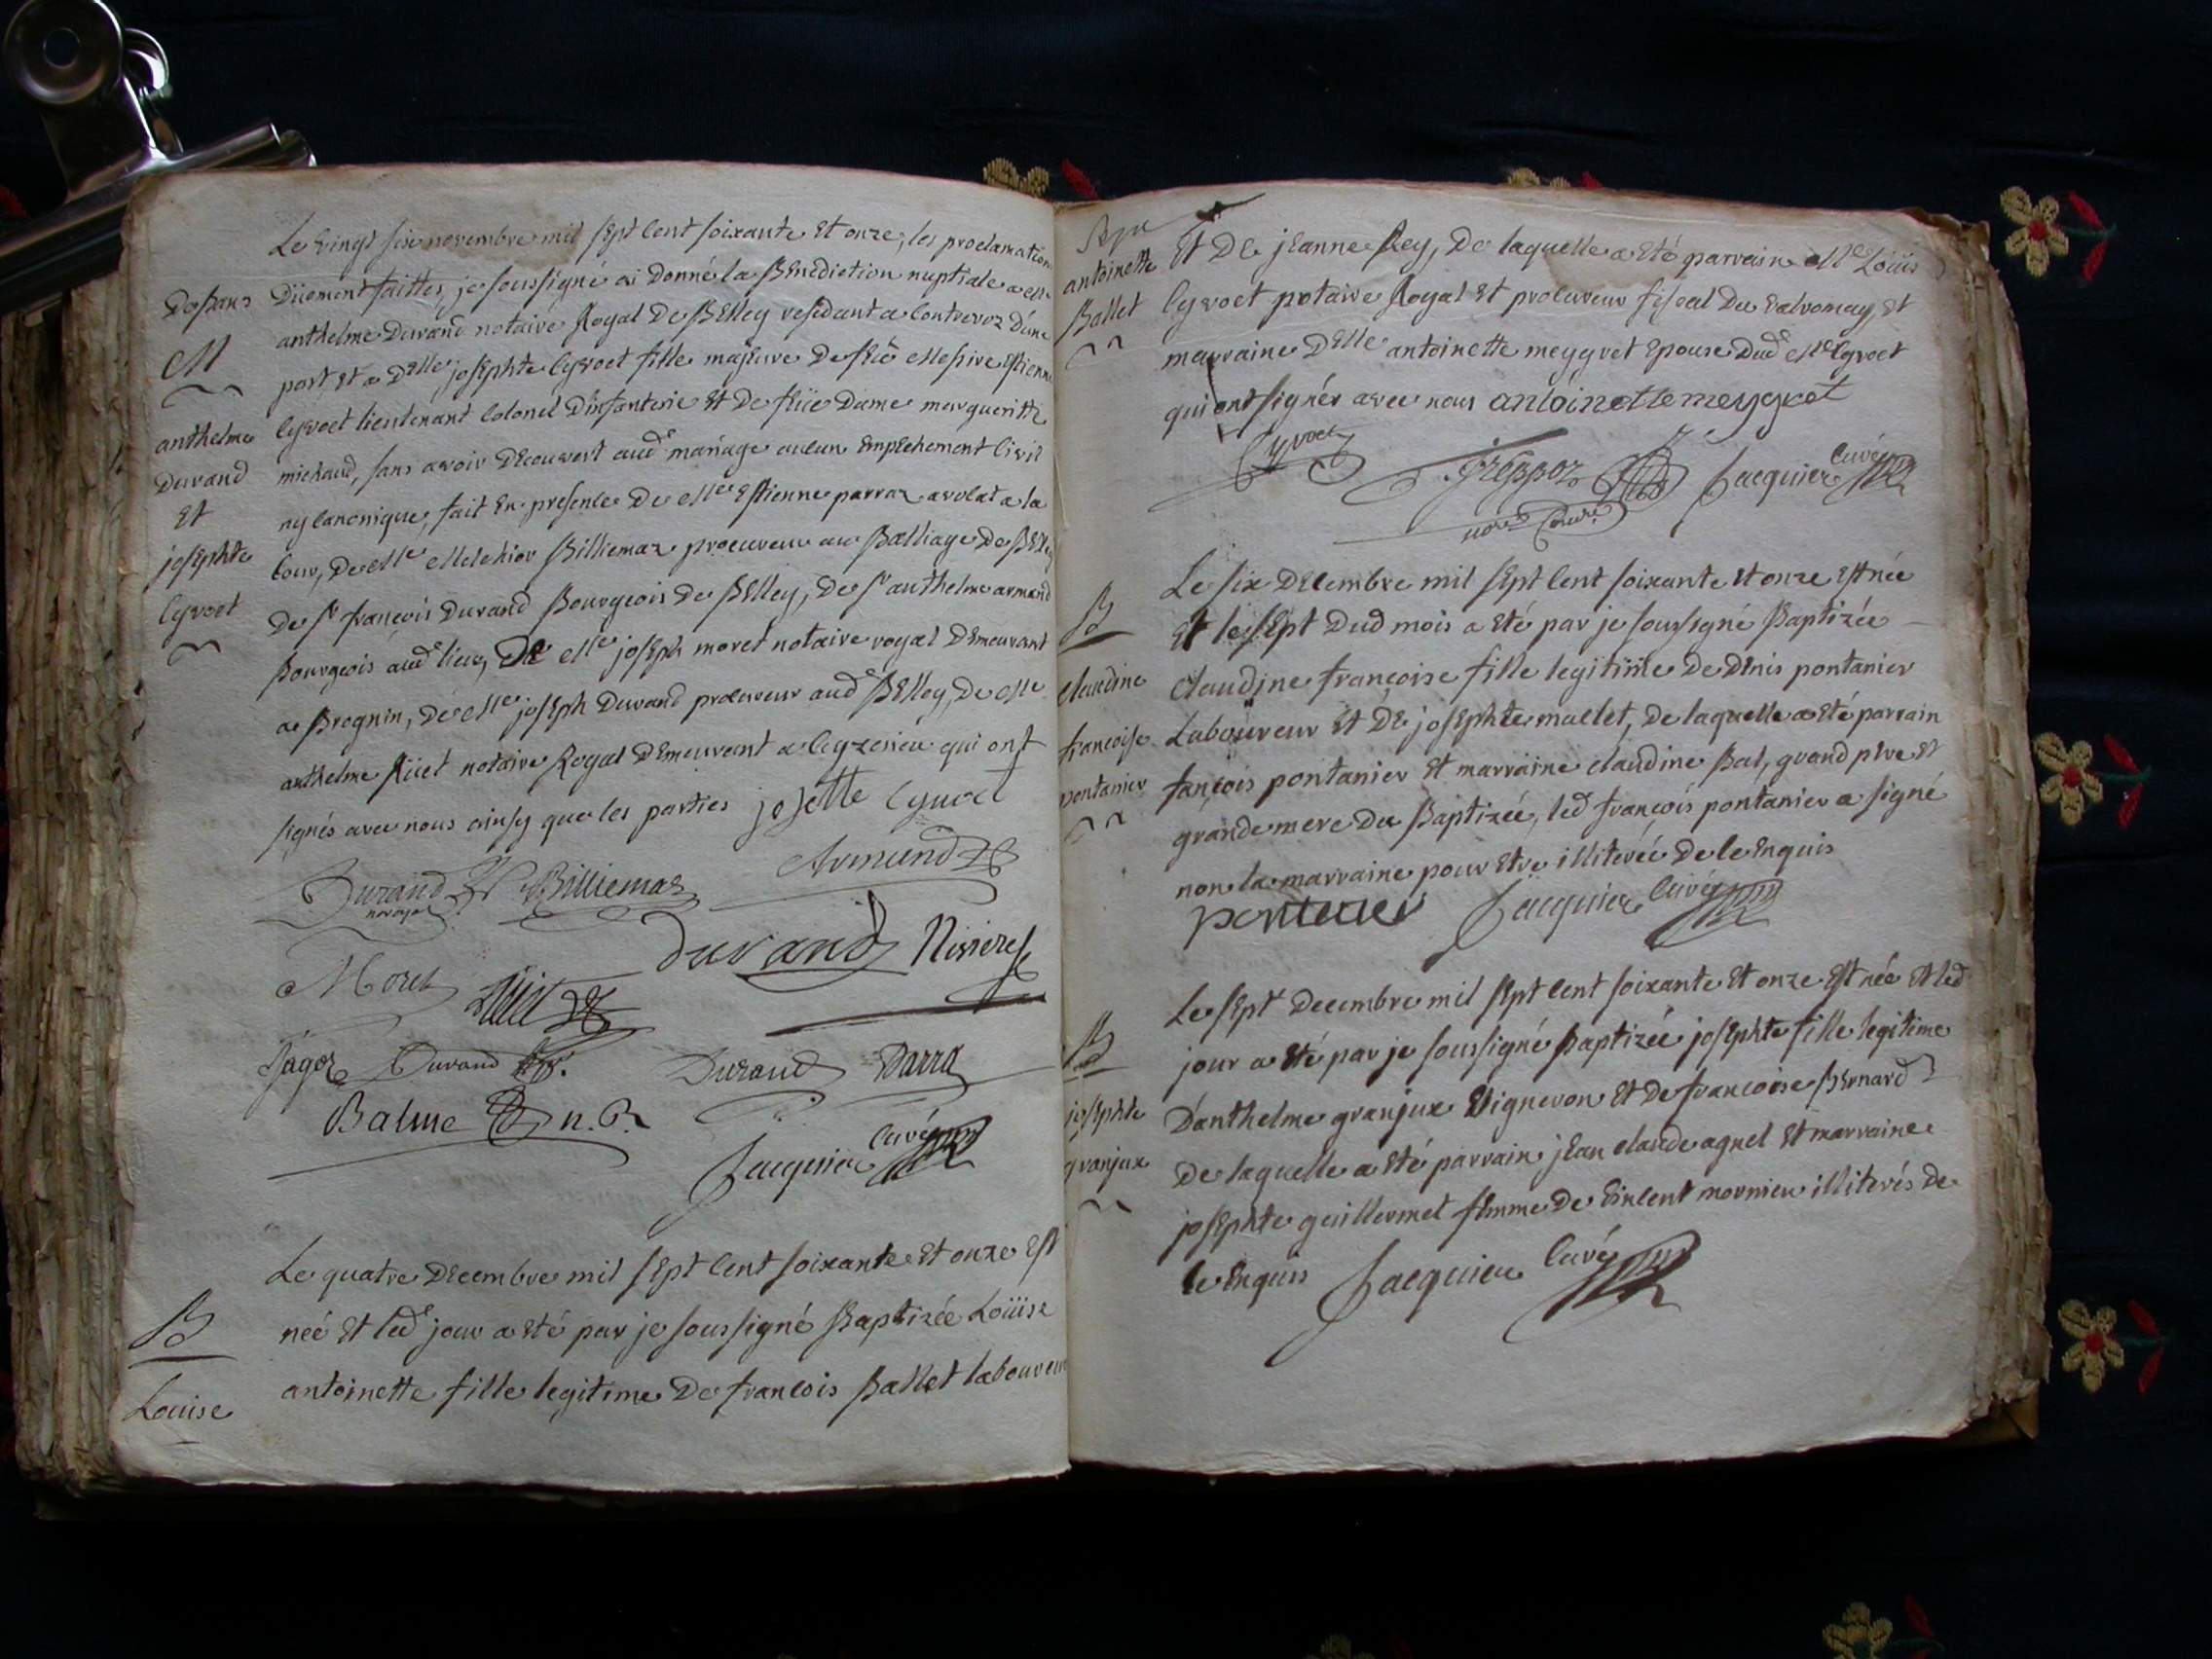 Le vingt six novembre mil sept cent soixante et onze, les proclamation
Düement faittes, je soussigné ai donné la Benediction nuptiale a
anthelme Durand notaire Royal de Belley residant a Contrevoz d'une
part et a Delle josephte Cyvoct fille majeure de feu Messire Estienne
Cyvoct lieutenant Colonel d'infanterie et de feüe Dame margueritte
michaud, sans avoir découvert aud mariage aucun empechement civil
ny canonique, fait en presence de Me Estienne parraz avocat a la
Cour, de Me Melchior Billiemaz procureur au Balliage de Belley
de Sr françois Durand Bourgeois de Belley, de Sr anthelme armand
Bourgeois aud lieu, de Me joseph moret notaire royal demeurant
a Bregnin, de Me joseph Durand procureur aud Belley, de Me
anthelme Rüet notaire Royal demeurant a Ceyzerieu qui ont
signés avec nous ainsy que les parties josette Cyvoct
Durand Billiemaz Armand
Moret Rüet Durand Rivieres
Pagoz Durand Durand Parra
Balme n. R.
Jacquier curé
M
anthelme
Durand
Et
josephte
Cyvoct
Le quatre Decembre mil sept cent soixante et onze est
neé et led jour a eté par je soussigné Baptizée Loüise
antoinette fille legitime de francois Ballet laboureur
B
Louise
antoinette
Ballet
Et de jeanne Rey, de laquelle a eté parrain Me Loüis
Cyvoct notaire Royal et procureur fiscal du valromey, et
marraine Delle antoinette meygret Epouse dud Me Cyvoct
qui ont signés avec nous antoinette meygret
Cyvoct Greppoz Jacquier curé
B
claudine
francoise
pontanier
Le six Decembre mil sept cent soixante et onze est née
et le sept dud mois a eté par je soussigné Baptizée
claudine françoise fille legitime de Denis pontanier
Laboureur et de josephte mallet, de laquelle a eté parrain
fançois pontanier et marraine claudine Bal, grand pere et
grande mere du Baptizée, led françois pontanier a signé
non la marraine pour etre illiterée de ce enquis
pontanier Jacquier curé
B
josephte
granjux
Le sept decembre mil sept cent soixante et onze est née et led
jour a eté par je soussigné Baptizée josephte fille legitime
D'anthelme granjux vigneron et de francoise Bernard
de laquelle a eté parrain jean claude agnel et marraine
josephte guillermet femme de vincent mornieu illiterés de
ce enquis Jacquier curé